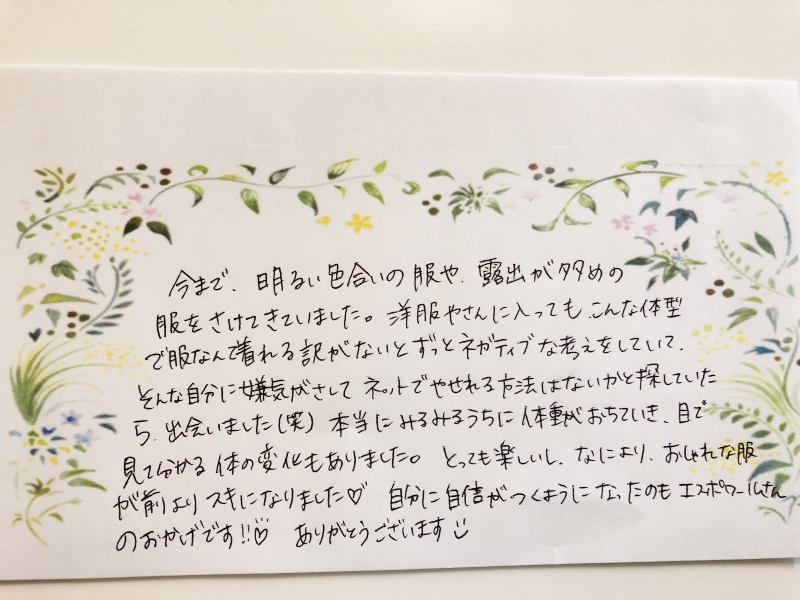 今まで、明るい色合いの服や、露出が多めの
服をさけてきていました。洋服やさんに入っても、こんな体型
で服なんて着れる訳がないとずっとネガティブな考えをしていて、
そんな自分に嫌気がさして ネットでやせれる方法はないかと探していた
ら、出会いました(笑) 本当にみるみるうちに体動がおちていき、目で
見て分かる体の変化もありました。 とっても楽しいし、なにより、おしゃれな服
が前よりスキになりました♡ 自分に自信がつくようになったのも エスポワールさん
のおかげです!!♡ ありがとうございます